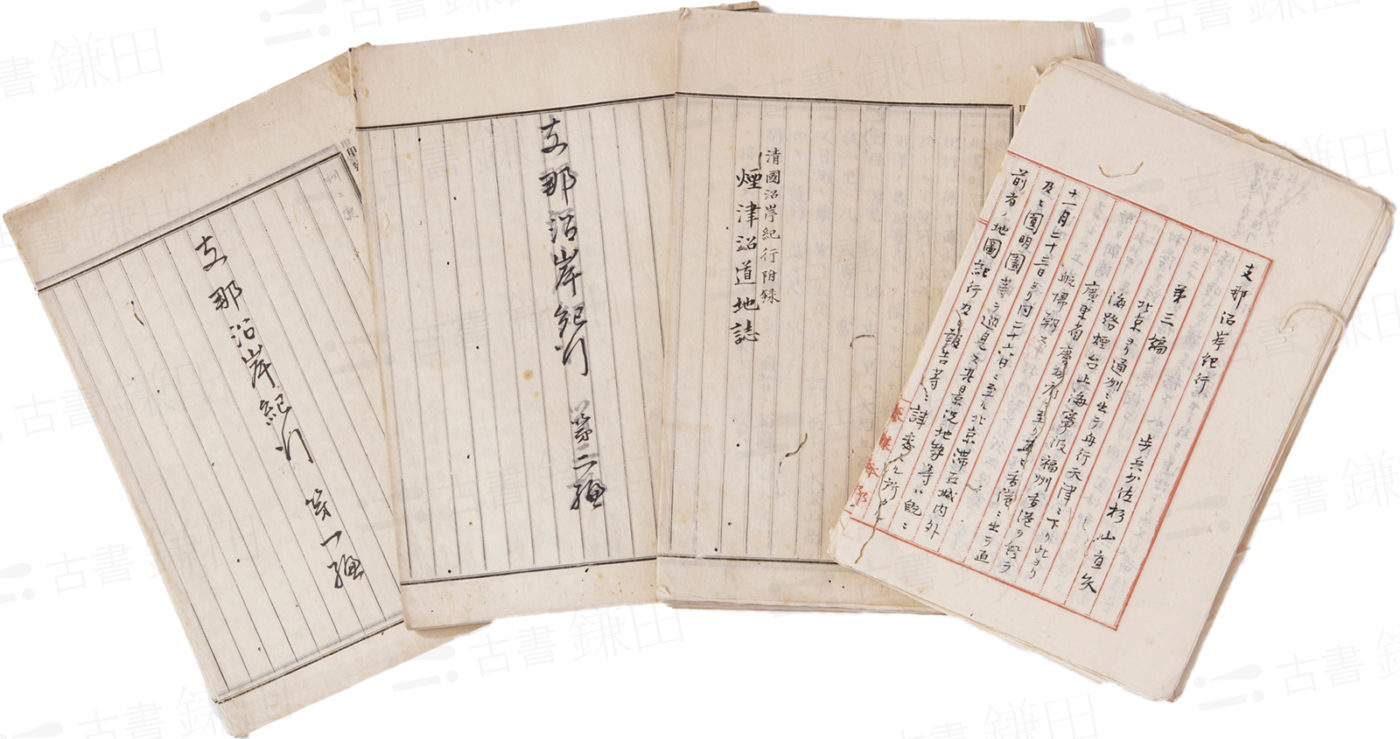 支那沿岸紀行 第一編
支那沿岸紀行 第二編
清國沿岸紀行附録
煙津沿道地誌
支那沿岸紀行
第三編
歩兵少佐杉山直矢
北京ヨリ通州ニ出テ舟行天津ニ下リ此ヨリ
海路煙台上海寧波福州香港ヲ経テ
廣東省廣州府ニ至リ再ヒ香港ニ出テ直
ニ帰朝ス
十一月二十三日ヨリ同二十六日ニ至ル北京滞在城内外
及ヒ圓明園等ヲ巡見ス其景况地勢等ハ既ニ
前者ノ地圖紀行及ヒ報告等ニ詳
古書 鎌田